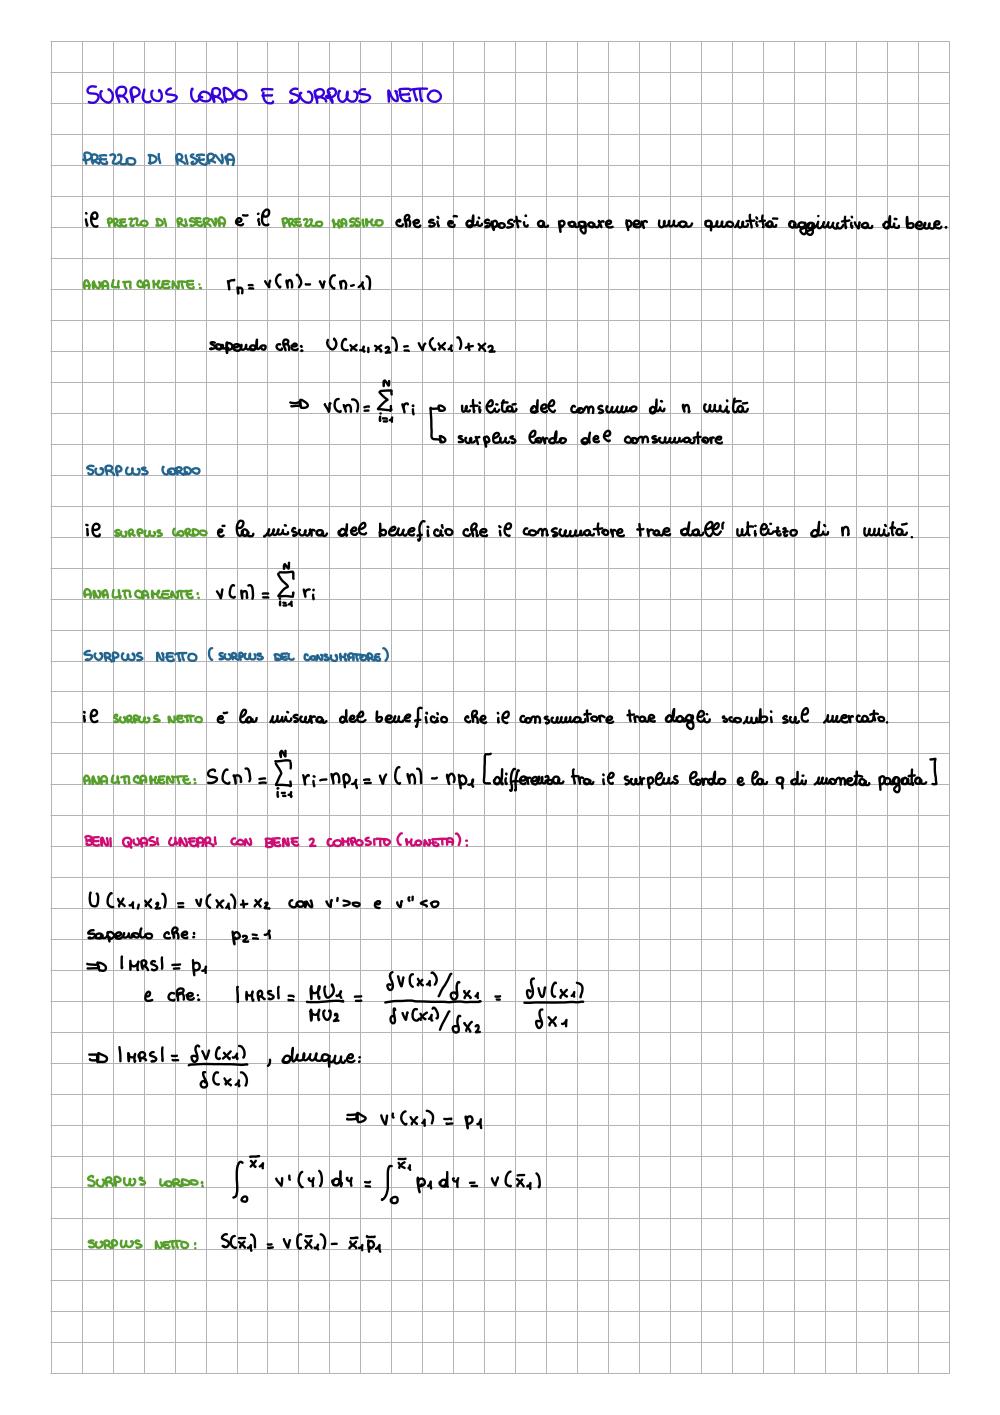 SURPLUS LORDO E SURPLUS NETTO
PREZZO DI RISERVA
il PREZZO DI RISERVA è il PREZZO MASSIMO che si è disposti a pagare per una quantità aggiuntiva di bene.
ANALITICAMENTE: rₙ = v(n) - v(n-1)
sapendo che: U(x₁,x₂) = v(x₁) + x₂
⇒ v(n) = ∑ᵢ₌₁ᴺ rᵢ → utilità del consumo di n unità
→ surplus lordo del consumatore
SURPLUS LORDO
il SURPLUS LORDO è la misura del beneficio che il consumatore trae dall'utilizzo di n unità.
ANALITICAMENTE: v(n) = ∑ᵢ₌₁ᴺ rᵢ
SURPLUS NETTO (SURPLUS DEL CONSUMATORE)
il SURPLUS NETTO è la misura del beneficio che il consumatore trae dagli scambi sul mercato.
ANALITICAMENTE: S(n) = ∑ᵢ₌₁ᴺ rᵢ - np₁ = v(n) - np₁ [differenza tra il surplus lordo e la q di moneta pagata]
BENI QUASI LINEARI CON BENE 2 COMPOSITO (MONETA):
U(x₁,x₂) = v(x₁) + x₂ con v'>0 e v''<0
sapendo che: p₂ = 1
⇒ |MRS| = p₁
e che: |MRS| = MU₁/MU₂ = (δv(x₁)/δx₁)/(δv(x₁)/δx₂) = δv(x₁)/δx₁
⇒ |MRS| = δv(x₁)/δ(x₁) , dunque:
⇒ v'(x₁) = p₁
SURPLUS LORDO: ∫₀^x̄₁ v'(y) dy = ∫₀^x̄₁ p₁ dy = v(x̄₁)
SURPLUS NETTO: S(x̄₁) = v(x̄₁) - x̄₁p̄₁